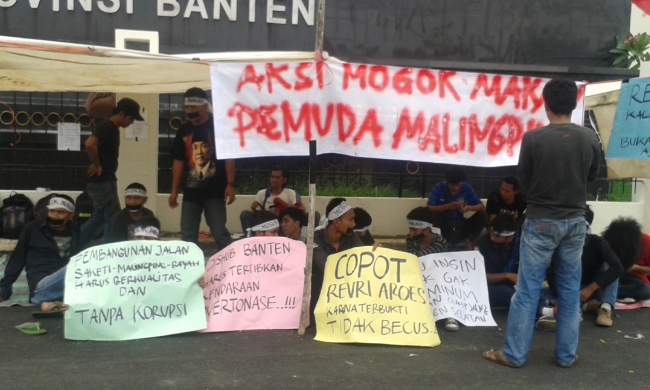 OVINSI BANTEN
AKSI MOGOK MAK
PEMUDA MALINGPI
PEMBANGUNAN JALAN
SAKETI-MALINGPING-BAYAH
HARUS BERKUALITAS
DAN
TANPA KORUPSI
BANTEN
HARUS TERTIBKAN
KENDARAAN
VERTONASE..!!!
COPOT
REVRI AROES
KARNA TERBUKTI
TIDAK BECUS.
INGIN
GAK
MINUM
SELATAN
RE
KAL
BUK